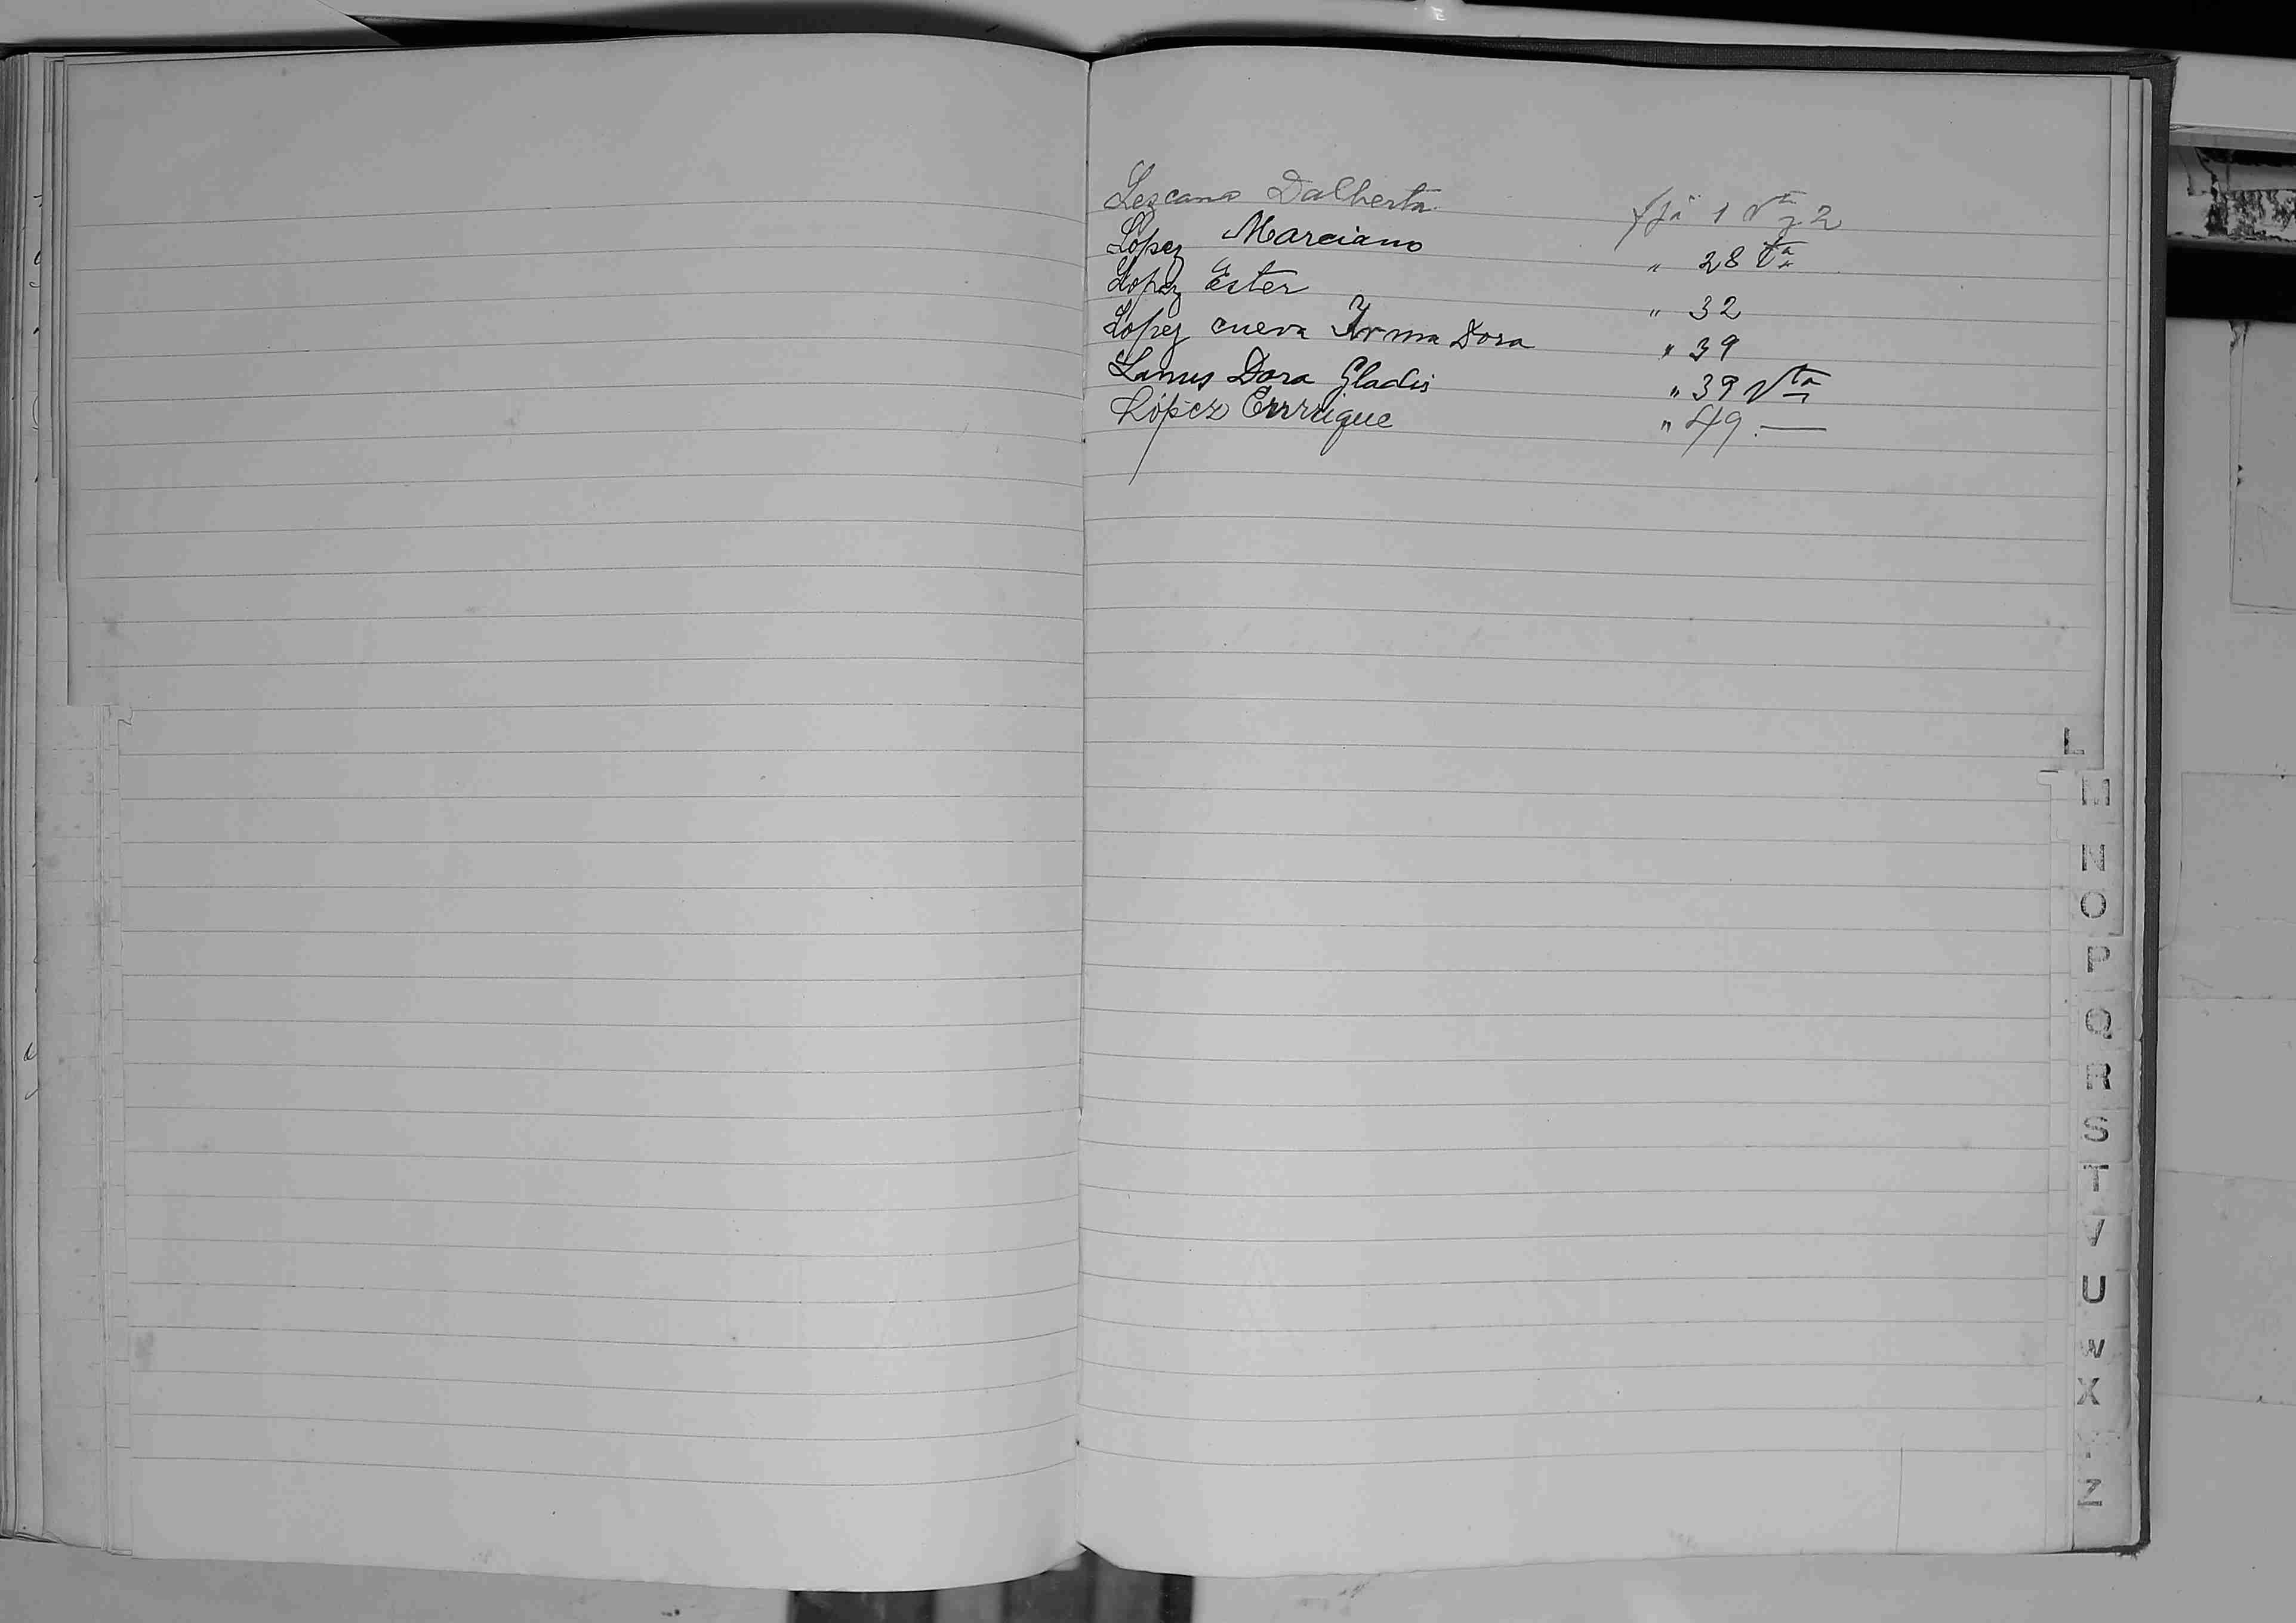 Lezcano Dalberta fjа 1 Vta y 2
Lopez Marciano " 28 Vta
Lopez Ester " 32
Lopez cueva Yrma Dora " 39
Lanus Dora Gladis " 39 Vta
López Enrrique " 49.—
L
M
N
O
P
Q
R
S
T
V
U
W
X
Z